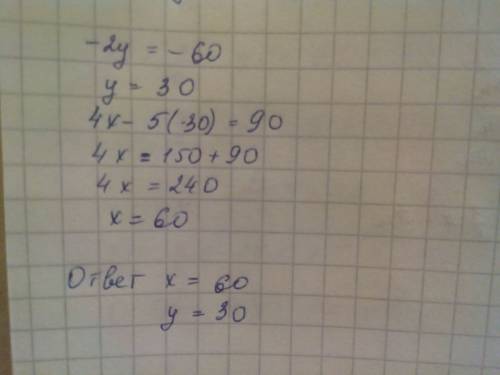 -2y = -60
y = 30
4x - 5(·30) = 90
4x = 150 + 90
4x = 240
x = 60
Ответ x = 60
y = 30